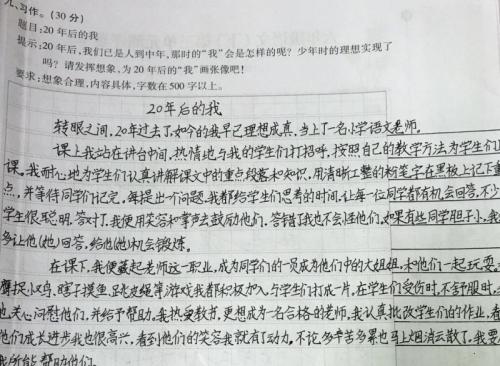 九、习作。(30分)
题目:20年后的我
提示:20年后,我们已是人到中年,那时的“我”会是怎样的呢?少年时的理想实现了
吗?请发挥想象,为20年后的“我”画张像吧!
要求:想象合理,内容具体,字数在500字以上。
20年后的我
转眼之间,20年过去了,如今的我早已理想成真,当上了一名小学语文老师。
课上我站在讲台中间,热情地与我的学生们打招呼,按照自己的教学方法为学生们
课。我耐心地为学生们认真讲解课文中的重点段落和知识,用清晰工整的粉笔字在黑板上记下重
点,并等待同学们记完,每提出一个问题,我都给学生们思考的时间,让每一位同学都有机会回答,不少
学生很聪明,答对了,我便用笑容和掌声去鼓励他们,答错了我也不会怪他们,如果有些同学胆子小,我
多让他(她)回答,给他(她)机会锻炼。
在课下,我便藏起老师这一职业,成为同学们的一员成为他们中的大姐姐,和他们一起玩耍,
鹰捉小鸡,瞎子摸鱼,跳皮绳等游戏我都积极加入,与学生们打成一片,在学生们受伤时,不舒服时,
也关心问慰他们,并给予帮助,我热爱教书,更想成为一名合格的老师,我认真批改学生们的作业,看
他们成长进步我也很高兴,看到他们的笑容我就有动力,不论多辛苦多累也马上烟消云散了,我要
我所能帮助他们。